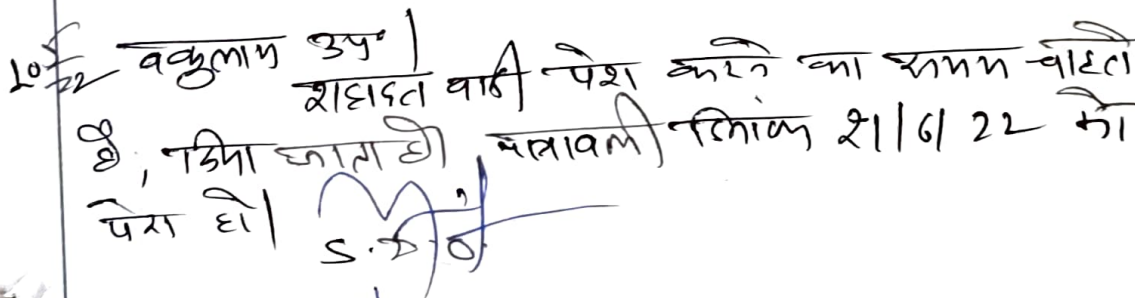 10/5/22 वकुलाय उप०।
शहादत वादी पेश करने का समय चाहते
है, दिया जाता है। पत्रावली दिनांक 21/6/22 को
पेश हो।
S.D.O.